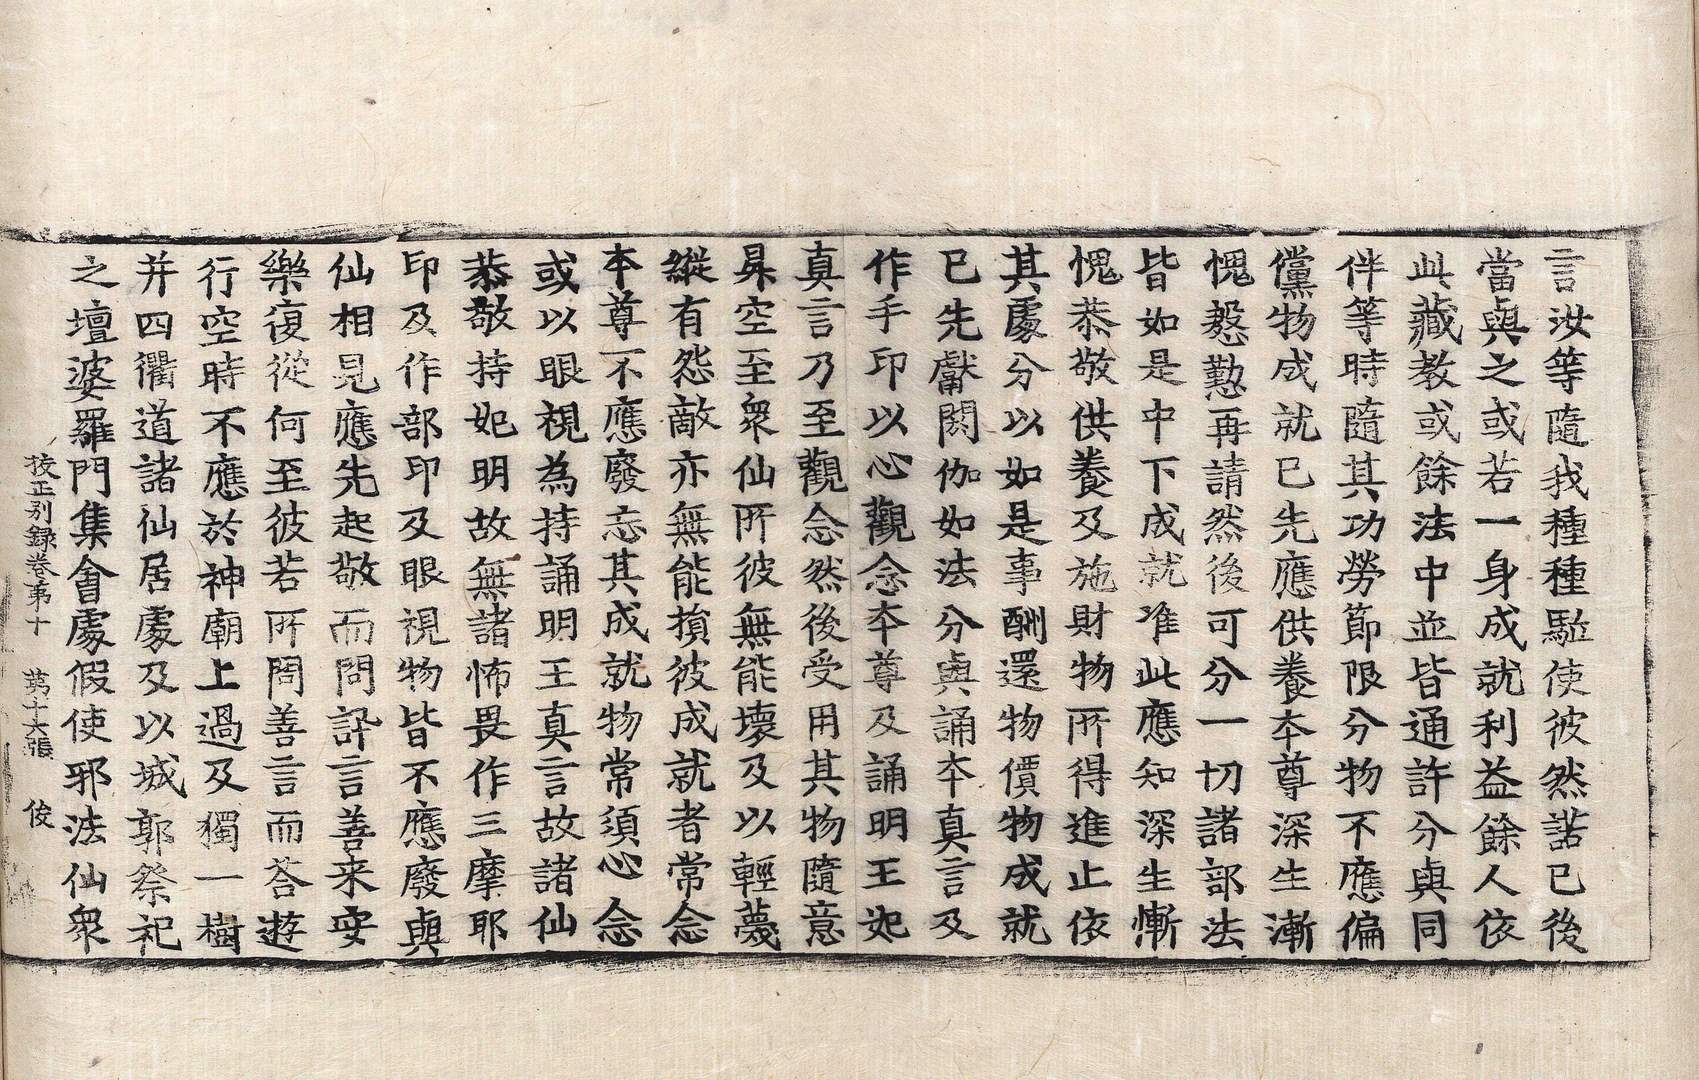 言汝等隨我種種駈使彼然諾已後
當與之或若一身成就利益餘人依
此藏教或餘法中並皆通許分與同
伴等時隨其功勞節限分物不應偏
儻物成就已先應供養本尊深生漸
愧慇懃再請然後可分一切諸部法
皆如是中下成就准此應知深生慚
愧恭敬供養及施財物所得進止依
其處分以如是事酬還物價物成就
已先獻閼伽如法分與誦本真言及
作手印以心觀念本尊及誦明王妃
真言乃至觀念然後受用其物隨意
昇空至衆仙所彼無能壞及以輕蔑
縱有怨敵亦無能損彼成就者常念
本尊不應廢忘其成就物常須心念
或以眼視為持誦明王真言故諸仙
恭敬持妃明故無諸怖畏作三摩耶
印及作部印及眼視物皆不應廢與
仙相見應先起敬而問訊言善来安
樂復從何至彼若所問善言而荅遊
行空時不應於神廟上過及獨一樹
并四衢道諸仙居處及以城郭祭祀
之壇婆羅門集會處假使邪法仙衆
挍正別錄卷苐十　苐十六張　俊